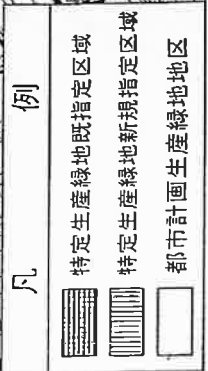 凡例
特定生産緑地既指定区域
特定生産緑地新規指定区域
都市計画生産緑地地区